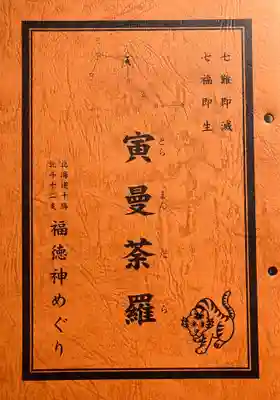 七難即滅
七福即生
寅曼荼羅
とらまんだら
北海道十勝
北斗十二支
福徳神めぐり